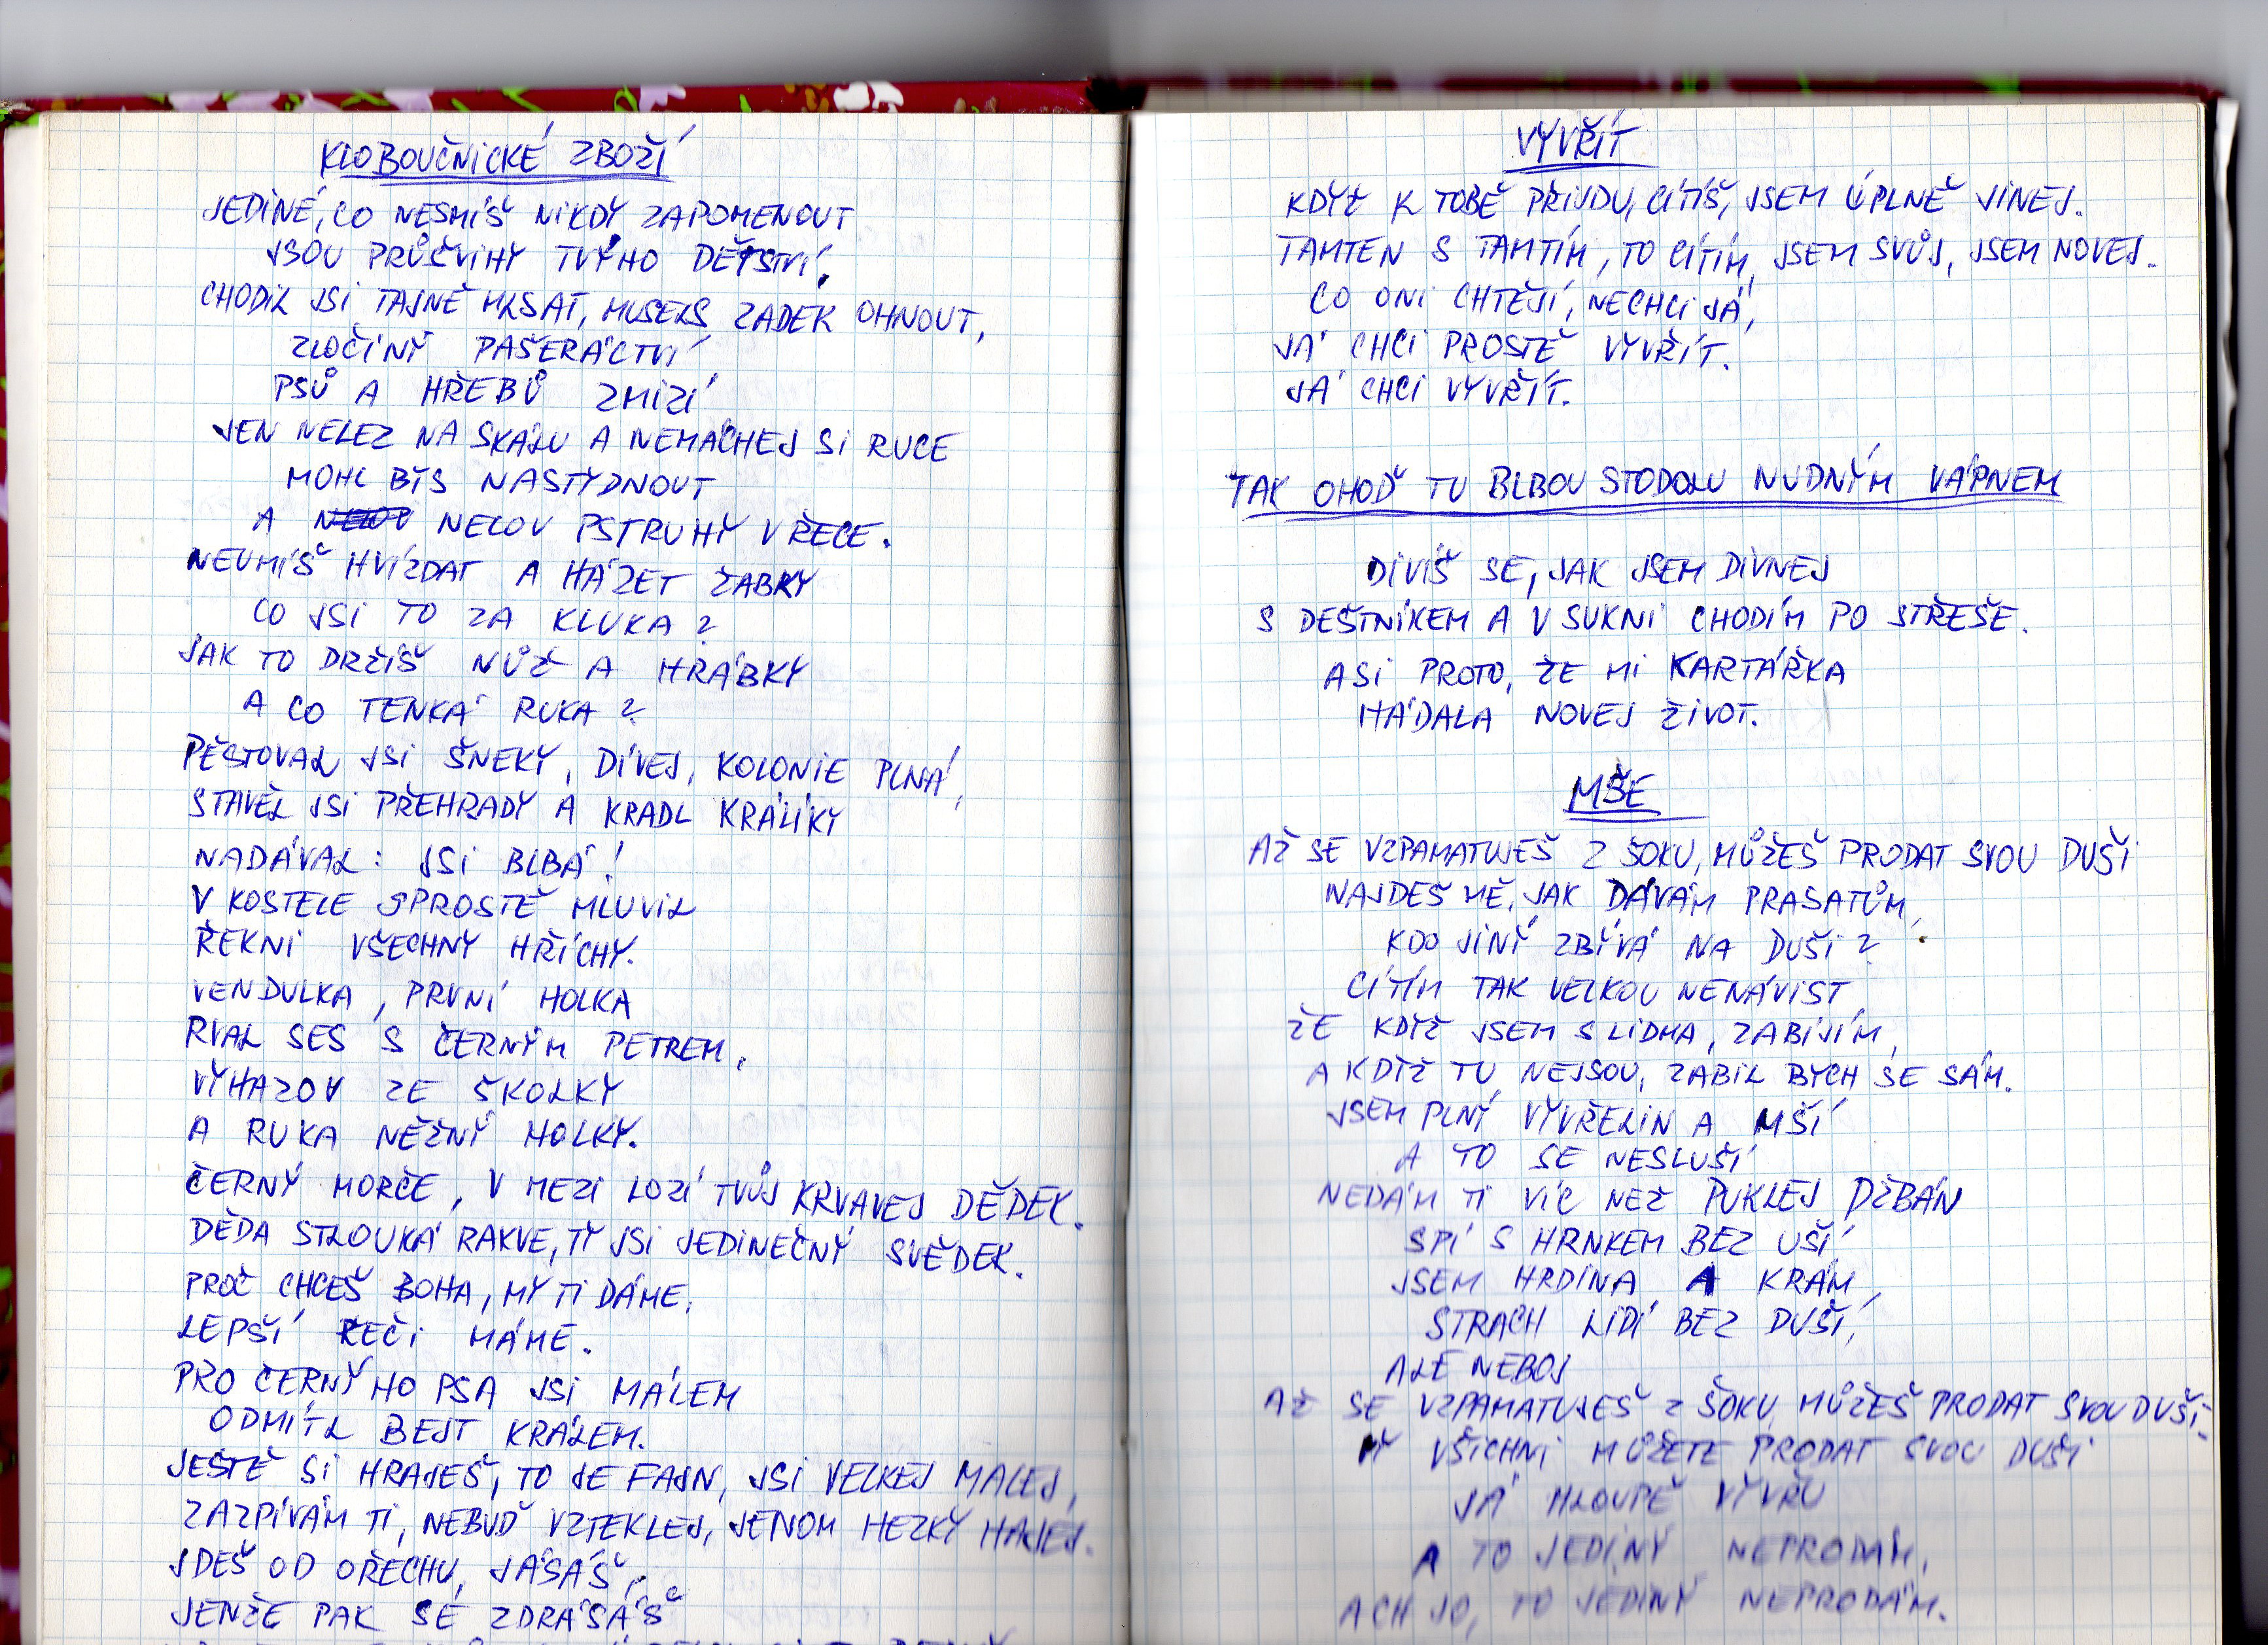 KLOBOUČNICKÉ ZBOŽÍ
JEDINÉ, CO NESMÍŠ NIKDY ZAPOMENOUT
JSOU PRŮČVIHY TVÝHO DĚTSTVÍ.
CHODIL JSI TAJNĚ MLSAT, MUSELS ZADEK OHNOUT,
ZLOČINY PAŠERÁCTVÍ
PSŮ A HŘEBŮ ZMIZÍ
JEN NELEZ NA SKÁLU A NEMÁCHEJ SI RUCE
MOHL BYS NASTYDNOUT
A NELOV PSTRUHY V ŘECE.
NEUMÍŠ HVÍZDAT A HÁZET ŽABKY
CO JSI TO ZA KLUKA?
JAK TO DRŽÍŠ NŮŽ A HRÁBKY
A CO TENKÁ RUKA?
PĚSTOVAL JSI ŠNEKY, DÍVEJ, KOLONIE PLNÁ,
STAVĚL JSI PŘEHRADY A KRADL KRÁLÍKY
NADÁVAL: JSI BLBÁ!
V KOSTELE SPROSTĚ MLUVIL
ŘEKNI VŠECHNY HŘÍCHY.
VENDULKA, PRVNÍ HOLKA
RVAL SES S ČERNÝM PETREM,
VYHAZOV ZE ŠKOLKY
A RUKA NĚŽNÝ HOLKY.
ČERNÝ MORČE, V MEZI LOZÍ TVŮJ KRVAVEJ DĚDEK.
DĚDA STLOUKÁ RAKVE, TY JSI JEDINEČNÝ SVĚDEK.
PROČ CHCEŠ BOHA, MY TI DÁME,
LEPŠÍ ŘEČI MÁME.
PRO ČERNÝHO PSA JSI MÁLEM
ODMÍTL BEJT KRÁLEM.
JEŠTĚ SI HRAJEŠ, TO JE FAJN, JSI VELKEJ MALEJ,
ZAZPÍVÁM TI, NEBUĎ VZTEKLEJ, JENOM HEZKY HAJEJ.
JDEŠ OD OŘECHU, JÁSÁŠ,
JENŽE PAK SE ZDRÁSÁŠ
VYVŘÍT
KDYŽ K TOBĚ PŘIJDU, CÍTÍŠ, JSEM ÚPLNĚ JINEJ.
TAMTEN S TAMTÍM, TO CÍTÍM, JSEM SVŮJ, JSEM NOVEJ.
CO ONI CHTĚJÍ, NECHCI JÁ,
JÁ CHCI PROSTĚ VYVŘÍT.
JÁ CHCI VYVŘÍT.
TAK OHOĎ TU BLBOU STODOLU NUDNÝM VÁPNEM
DIVÍŠ SE, JAK JSEM DIVNEJ
S DEŠTNÍKEM A V SUKNI CHODÍM PO STŘEŠE.
ASI PROTO, ŽE MI KARTÁŘKA
HÁDALA NOVEJ ŽIVOT.
MŠE
AŽ SE VZPAMATUJEŠ Z ŠOKU, MŮŽEŠ PRODAT SVOU DUŠI
NAJDEŠ MĚ, JAK DÁVÁM PRASATŮM,
KDO JINÝ ZBÝVÁ NA DUŠI?
CÍTÍM TAK VELKOU NENÁVIST,
ŽE KDYŽ JSEM S LIDMA, ZABÍJÍM,
A KDYŽ TU NEJSOU, ZABIL BYCH SE SÁM.
JSEM PLNÝ VYVŘELIN A MŠÍ
A TO SE NESLUŠÍ
NEDÁM TI VÍC NEŽ PUKLEJ DŽBÁN
SPÍ S HRNKEM BEZ UŠÍ,
JSEM HRDINA A KRÁM,
STRACH LIDÍ BEZ DUŠÍ,
ALE NEBOJ
AŽ SE VZPAMATUJEŠ Z ŠOKU, MŮŽEŠ PRODAT SVOU DUŠI.
VY VŠICHNI MŮŽETE PRODAT SVOU DUŠI
JÁ HLOUPĚ VYVŘU
A TO JEDINÝ NEPRODÁM,
ACH JO, TO JEDINÝ NEPRODÁM.